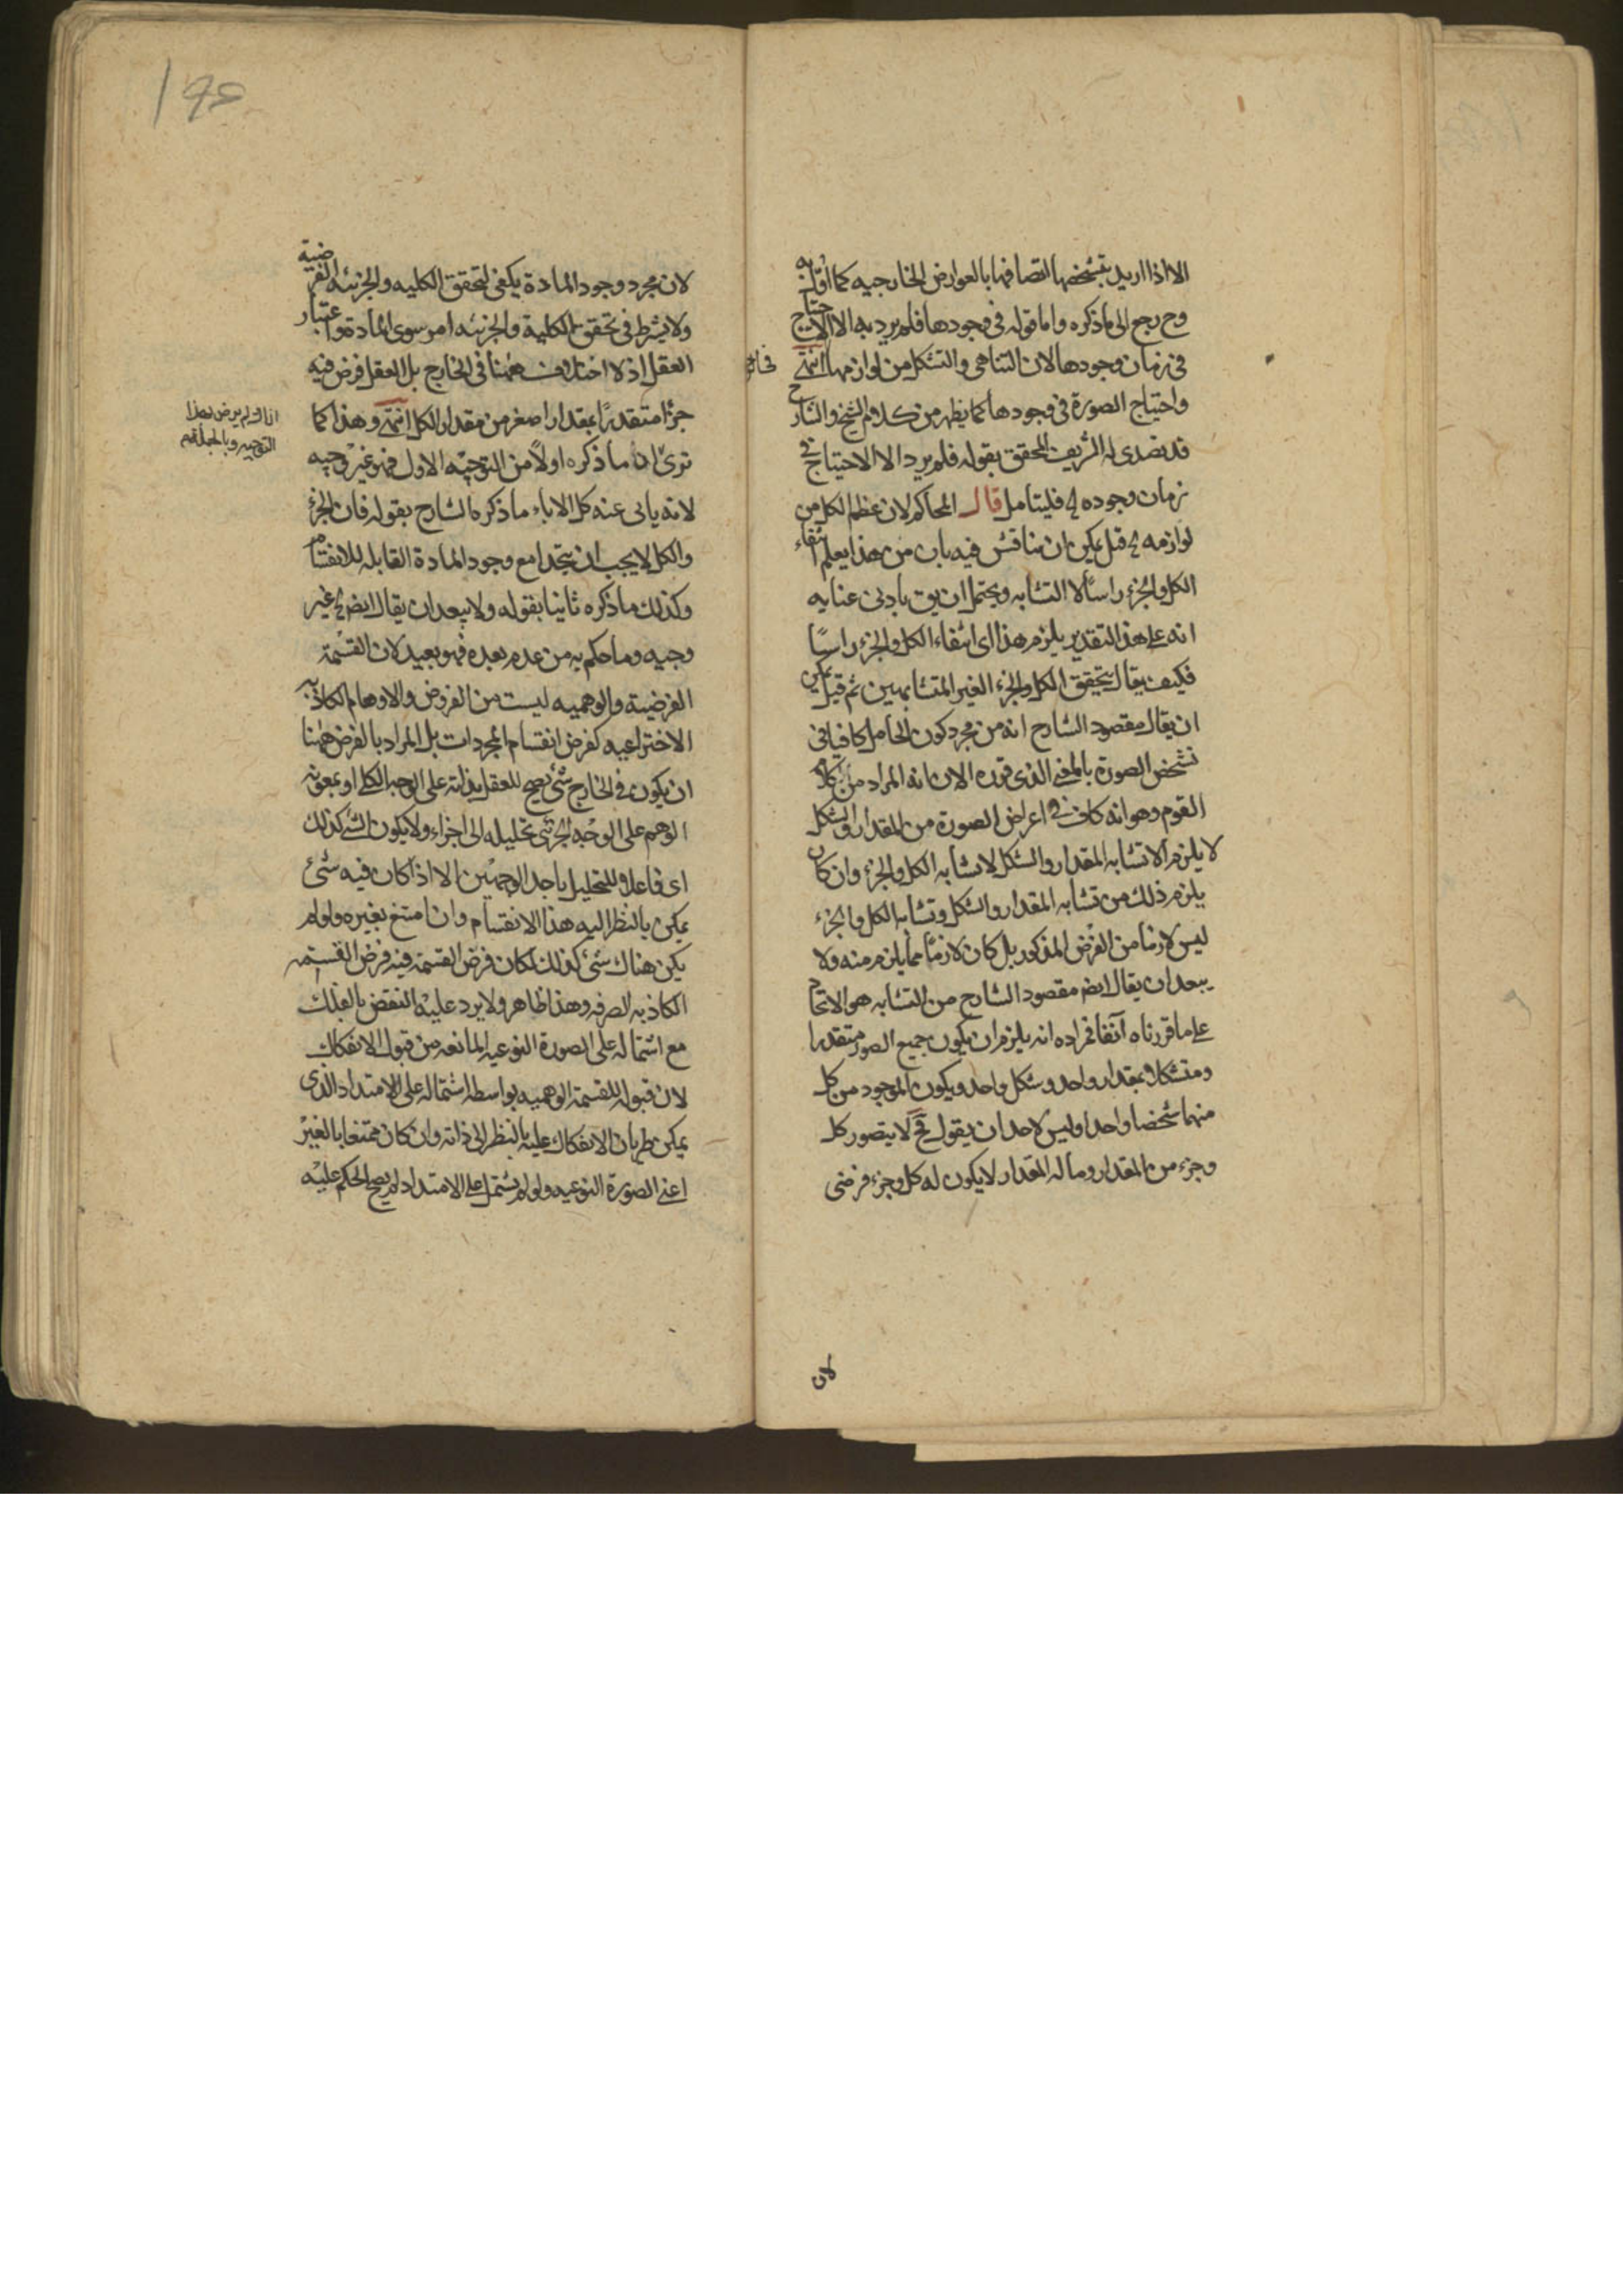 الا اذا اريد بتشخصها اتصافها بالعوارض الخارجيه كما اوّل به
وح رجع الى ما ذكره واما قوله فى وجودها فلم يرد به الا الاحتياج
فى زمان وجودها لان التناهى والتشكل من لوازمها انتهى
واحتياج الصورة فى وجودها كما يظهر من كلام الشيخ والشارح
قد تصدى له الشريف المحقق بقوله فلم يرد الا الاحتياج فى
زمان وجوده الخ فليتامل قال المحاكم لان عظم الكل من
لوازمه الخ قيل يمكن ان يناقش فيه بان من هذا يعلم انتفاء
الكل والجزء راسًا لا التشابه ويحتمل ان يق بادنى عنايه
انه على هذا التقدير يلزم هذا اى انتفاء الكل والجزء راسًا
فكيف يقال بتحقق الكل والجزء الغير المتشابهين ثم قيل يمكن
ان يقال مقصود الشارح انه من مجرد كون الحامل كافيا فى
تشخص الصورة بالمعنى الذى قرره الان انه المراد من كلام
القوم وهو انه كاف فى اعراض الصورة من المقدار والشكل
لا يلزم الا تشابه المقدار والشكل لا تشابه الكل والجزء وان كان
يلزم ذلك من تشابه المقدار والشكل وتشابه الكل والجزء
ليس لازما من الفرض المذكور بل كان لازمًا مما يلزم منه ولا
يبعد ان يقال ايضم مقصود الشارح من التشابه هو الاتحاد
على ما قررناه آنفا فمراده انه يلزم ان يكون جميع الصور متقدرا
ومتشكلا بمقدار واحد وشكل واحد ويكون الموجود من كل
منهما شخصا واحدا وليس لاحد ان يقول فح لا يتصور كل
وجزء من المقدار وما له المقدار لا يكون له كل وجزء فرضى
لان
لان مجرد وجود المادة يكفى لتحقق الكليه والجزئيه الفرضية
ولا يشترط فى تحقق الكلية والجزئيه امر سوى المادة واعتبار
العقل اذ لا اختلاف ههنا فى الخارج بل العقل فرض فيه
جزءا متقدرًا بمقدار اصغر من مقدار الكل انتهى وهذا كما
ترى اذ ما ذكره اولًا من التوجيه الاول فهو غير وجيه
لانه يابى عنه كل الاباء ما ذكره الشارح بقوله فان الجزء
والكل لا يجب ان يتحدا مع وجود المادة القابله للانقسام
وكذلك ما ذكره ثانيا بقوله ولا يبعد ان يقال ايضم الخ غير
وجيه وما حكم به من عدم بعده فهو بعيد لان القسمة
الفرضية والوهميه ليست من الفروض والاوهام الكاذبه
الاختراعيه كفرض انقسام المجردات بل المراد بالفرض ههنا
ان يكون فى الخارج شئ يصح للعقل بذاته على الوجه الكلى او بمعونه
الوهم على الوجه الجزئى تحليله الى اجزاء ولا يكون الشئ كذلك
اى قابلا للتحليل باحد الوجهين الا اذا كان فيه شئ
يمكن بالنظر اليه هذا الانقسام وان امتنع بغيره ولو لم
يكن هناك شئ كذلك لكان فرض القسمة فيه فرض القسمه
الكاذبه الصرفه وهذا ظاهر ولا يرد عليه النقض بالفلك
مع اشتماله على الصورة النوعيه المانعه من قبول الانفكاك
لان قبوله للقسمة الوهميه بواسطه اشتماله على الامتداد الذى
يمكن طريان الانفكاك عليه بالنظر الى ذاته وان كان ممتنعا بالغير
اعنى الصورة النوعيه ولو لم يشتمل على الامتداد لم يصح الحكم عليه